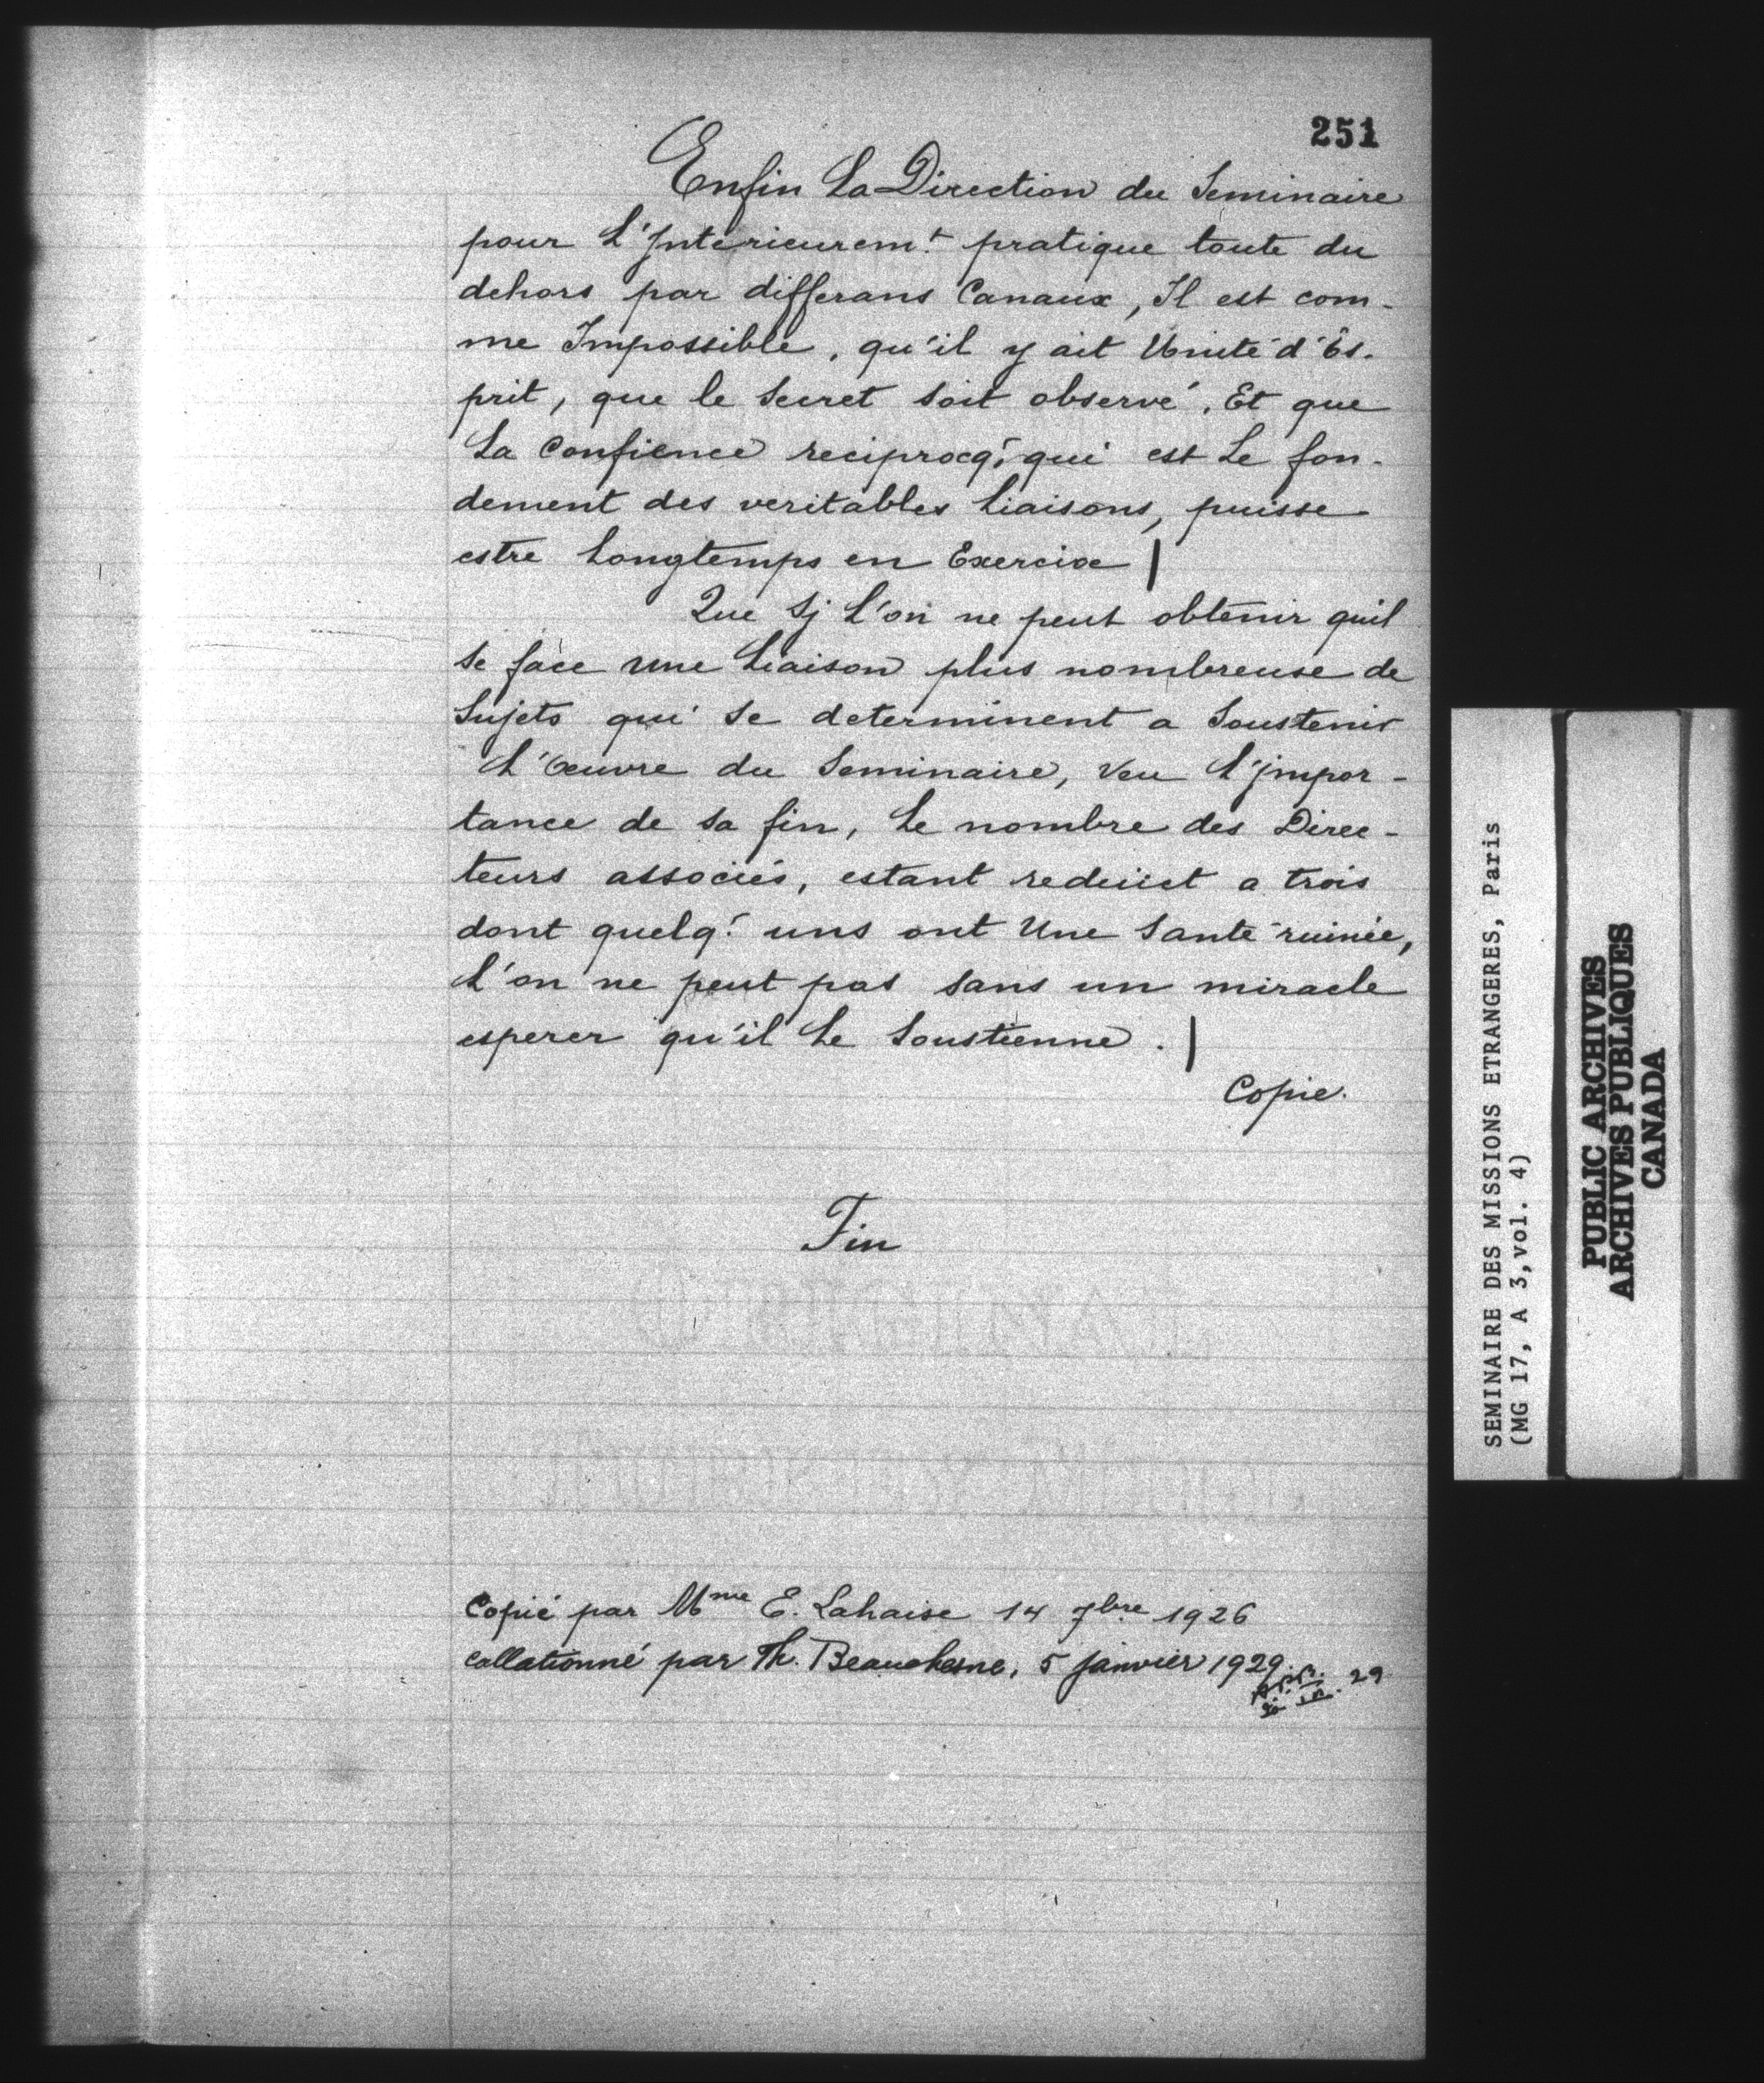 251
Enfin La Direction du Seminaire
pour L'Jnterieurem.t pratique toute du
dehors par differans Canaux, Il est com-
me Impossible, qu'il y ait Unité d'Es-
prit, que le secret soit observé. Et que
La Confience reciprocq; qui est Le fon-
dement des veritables Liaisons, puisse
estre Longtemps en Exercice |
Que Sj L'on ne peut obtenir quil
se face une Liaison plus nombreuse de
Sujets qui se determinent a Soustenir
L'Œuvre du Seminaire, veu L'jmpor-
tance de sa fin, Le nombre des Direc-
teurs associés, estant reduict a trois
dont quelq. uns ont Une Santé ruinée,
L'on ne peut pas sans un miracle
esperer qu'il Le Soustienne. |
Copie.
Fin
Copié par Mme E. Lahaise 14 7bre 1926
collationné par Th. Beauchesne, 5 janvier 1929.
29
SEMINAIRE DES MISSIONS ETRANGERES, Paris
(MG 17, A 3, vol. 4)
PUBLIC ARCHIVES
ARCHIVES PUBLIQUES
CANADA